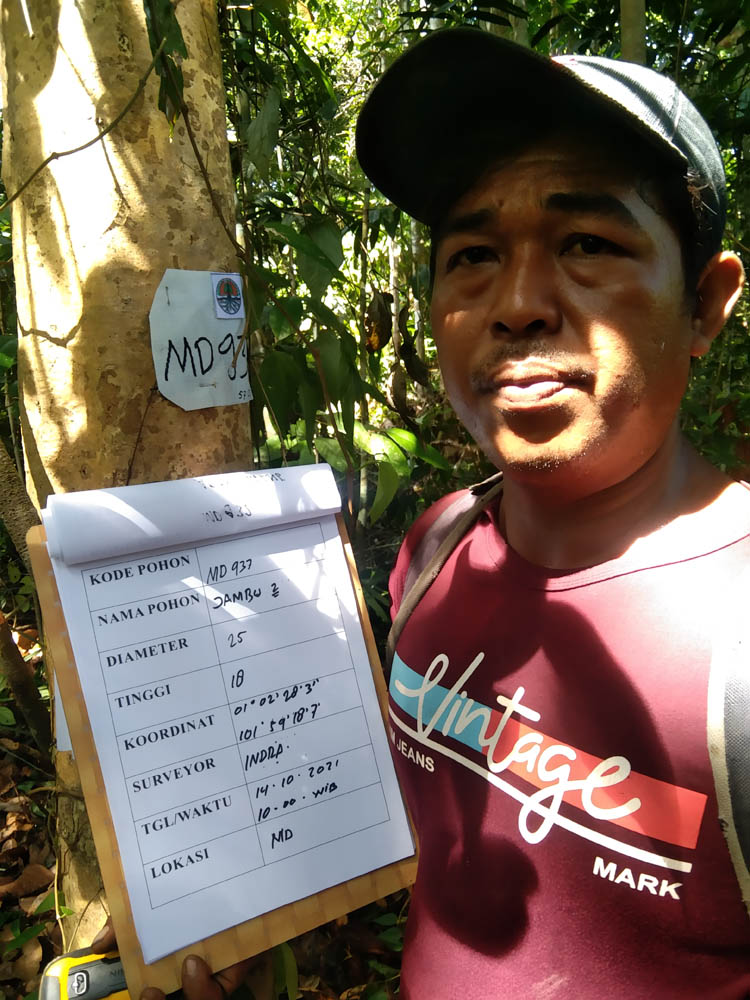 MD 937
KODE POHON MD 937
NAMA POHON JAMBU 2
DIAMETER 25
TINGGI 18
KOORDINAT 01° 02' 28.3"
101° 59' 18.7
SURVEYOR INDRA.
TGL/WAKTU 14.10.2021
10.00. WIB
LOKASI MD
Vintage
JEANS
MARK